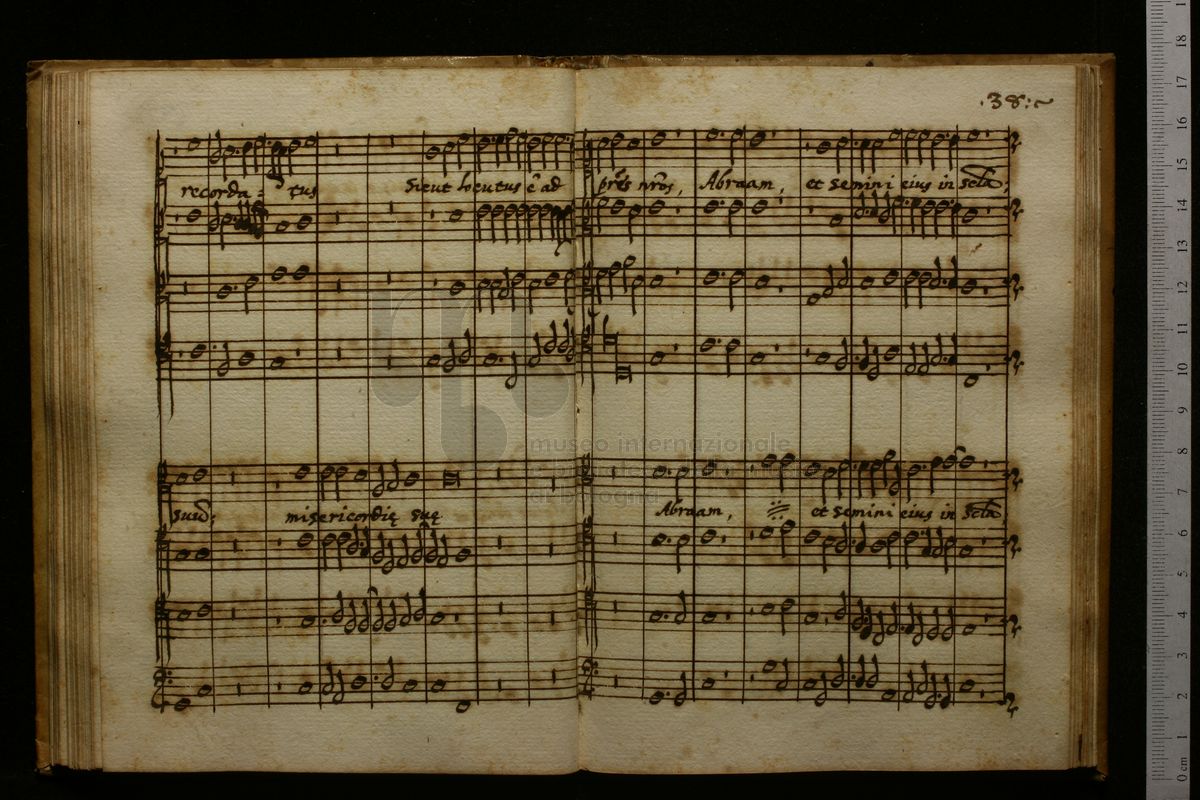 .38.
recorda - tus Sicut locutus ē ad prēs nrōs, Abraam, et semini eius in secla,
museo internazionale
di bologna
suū, misericordię suę Abraam, et semini eius in secla
18
17
16
15
14
13
12
11
10
9
8
7
6
5
4
3
2
1
0 cm